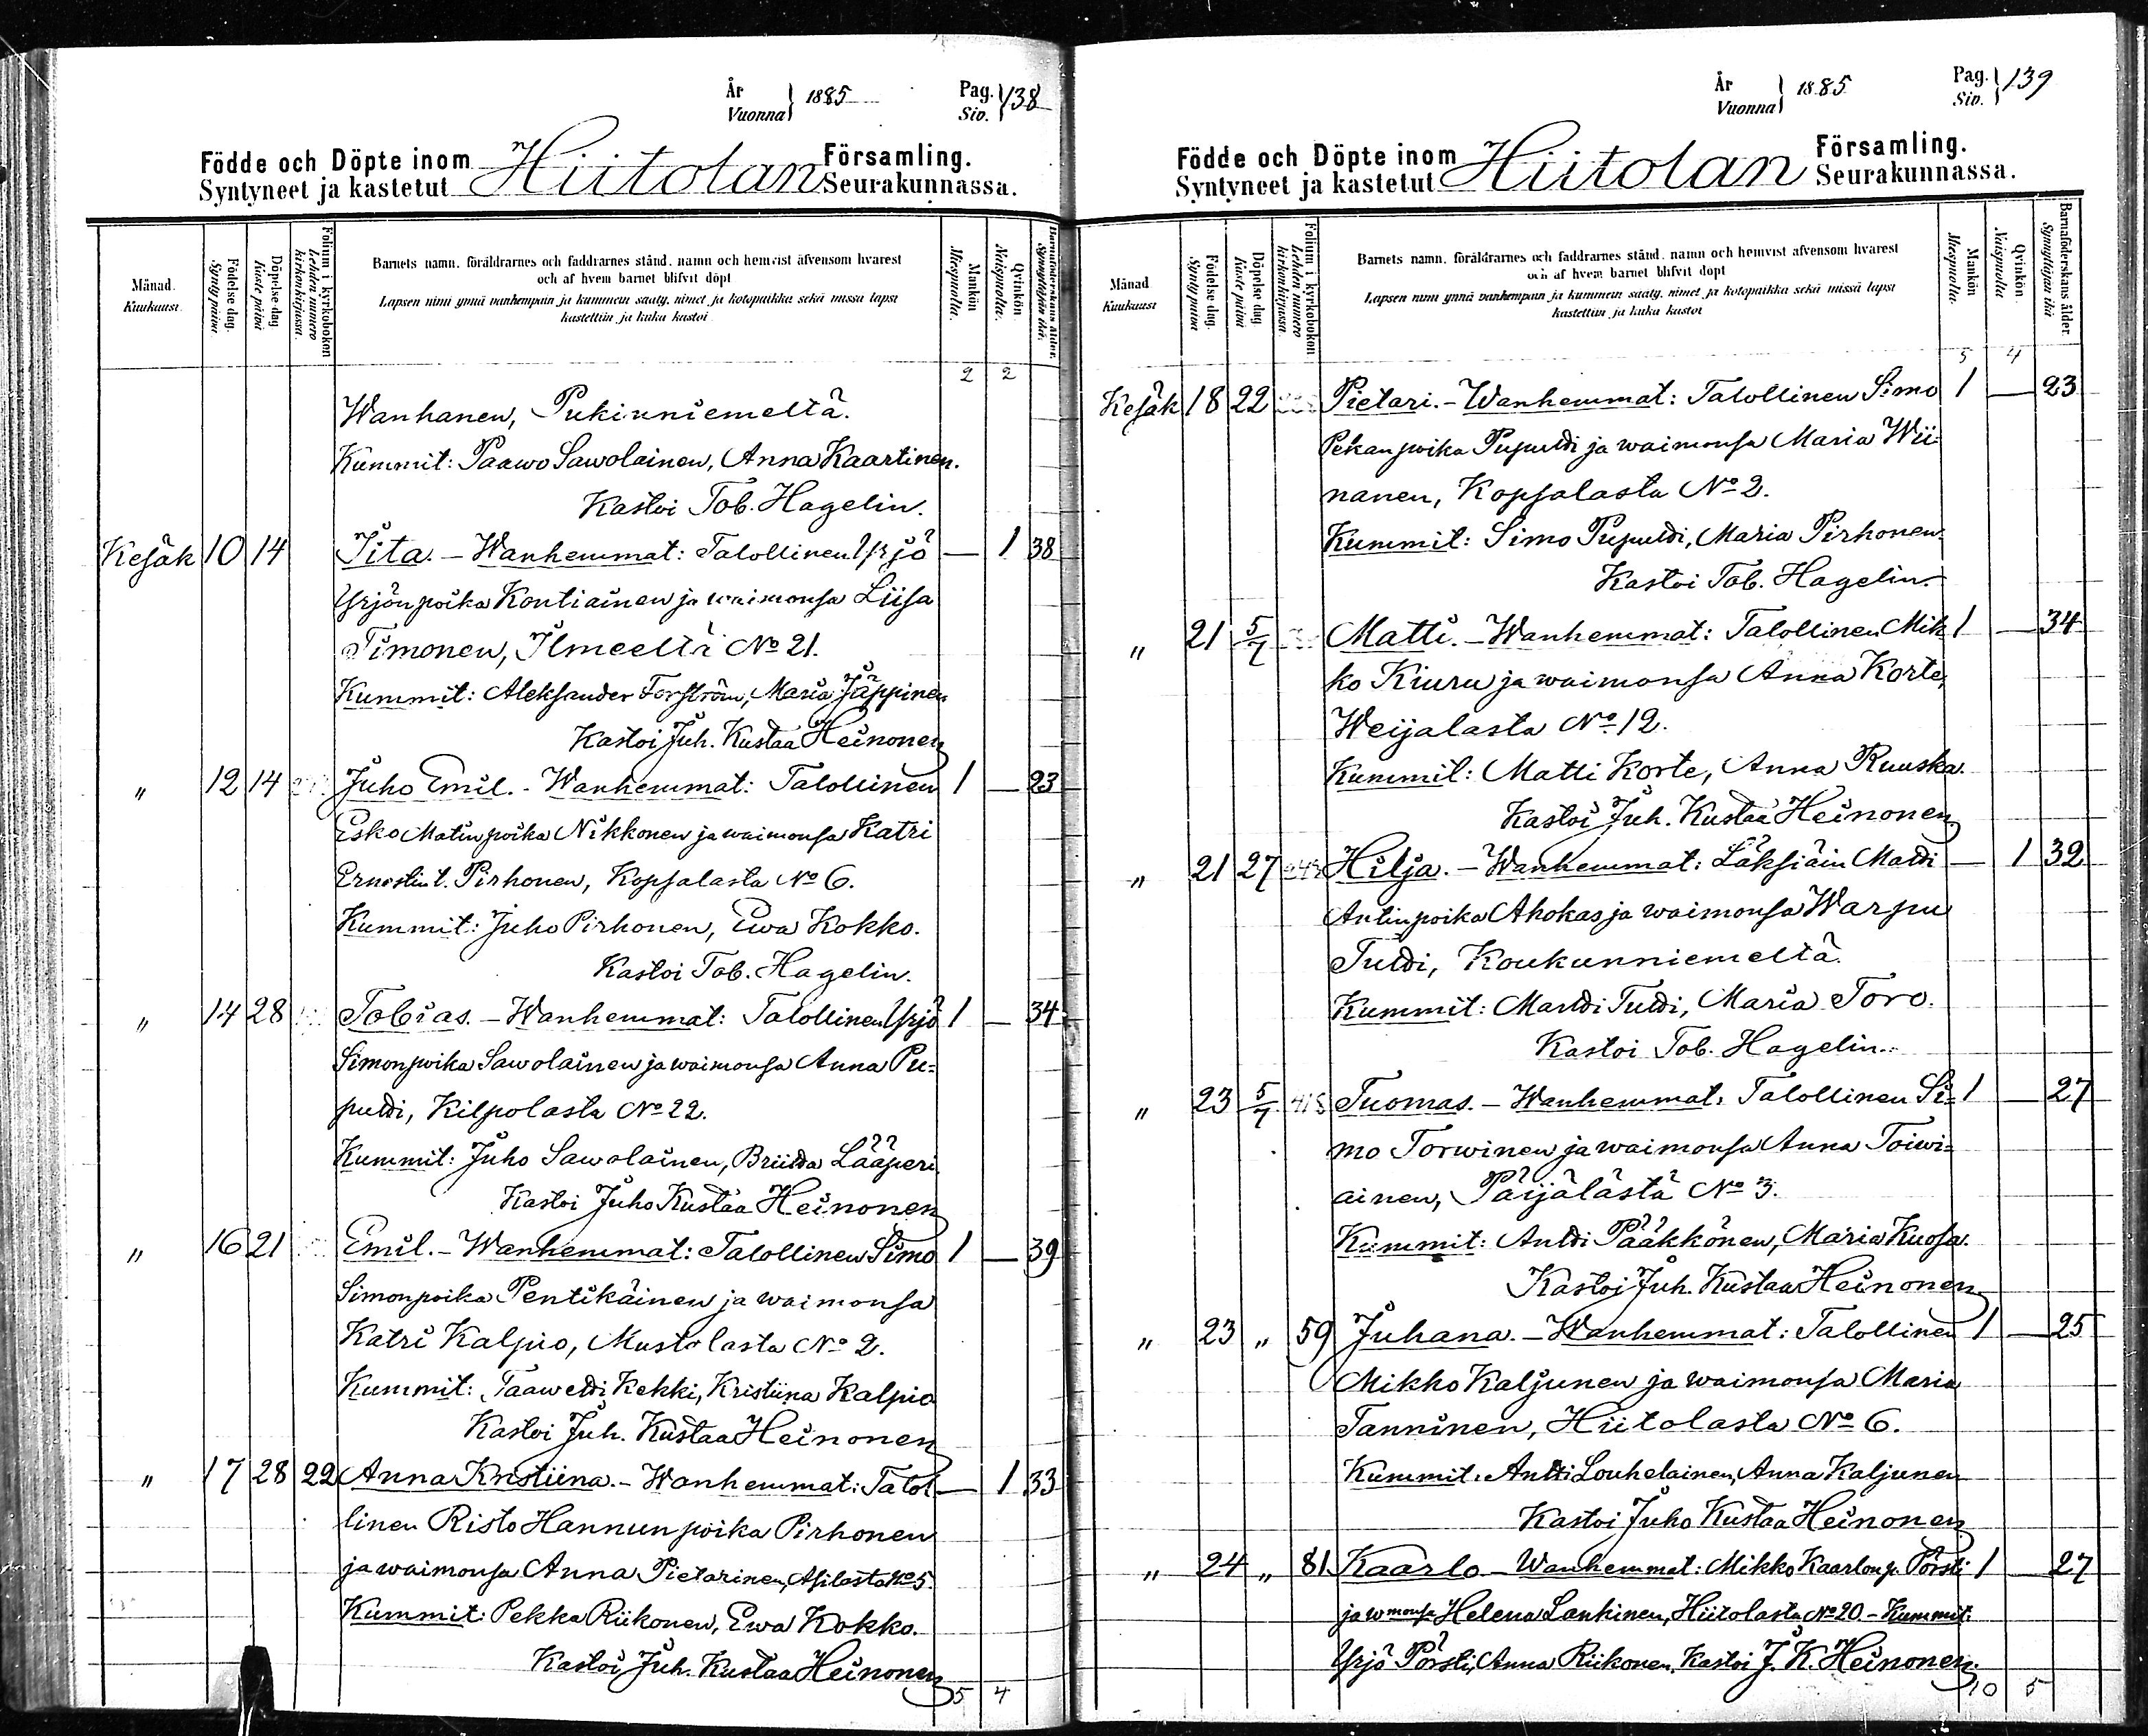 År
Vuonna
1885
Pag.
Siv.
138
Födde och Döpte inom
Syntyneet ja kastetut
Hiitolan
Församling.
Seurakunnassa.
Månad.
Kuukausi.
Födelse dag.
Synty päivä
Döpelse dag
Kaste päivä
Folium i kyrkobokon
Lehden numero
kirkonkirjassa.
Barnets namn, föräldrarnes och faddrarnes stånd, namn och hemvist äfvensom hvarest
och af hvem barnet blifvit döpt
Lapsen nimi ynnä vanhempain ja kummein sääty, nimet ja kotopaikka sekä missä lapsi
kastettiin ja kuka kastoi
Mankön
Miespuolta.
Qvinkön
Naispuolta.
Barnafoderskans ålder.
Synnyttäjän ikä.
2 2
Wanhanen, Pukinniemeltä.
Kummit: Paawo Sawolainen, Anna Kaartinen.
Kastoi Tob. Hagelin.
Kesäk 10 14 Iita. – Wanhemmat: Talollinen Yrjö — 1 38
Yrjönpoika Kontiainen ja waimonsa Liisa
Timonen, Ilmeeltä No 21.
Kummit: Aleksander Forström, Maria Jäppinen
Kastoi Juh. Kustaa Heinonen
" 12 14 Juho Emil. - Wanhemmat: Talollinen 1 — 23
Esko Matinpoika Nikkonen ja waimonsa Katri
Ernestint. Pirhonen, Kopsalasta No 6.
Kummit: Juho Pirhonen, Ewa Kokko.
Kastoi Tob. Hagelin.
" 14 28 Tobias. – Wanhemmat: Talollinen Yrjö 1 — 34
Simonpoika Sawolainen ja waimonsa Anna Pu=
putti, Kilpolasta No 22.
Kummit: Juho Sawolainen, Briitta Lääperi
Kastoi Juho Kustaa Heinonen
" 16 21 Emil. – Wanhemmat: Talollinen Simo 1 — 39
Simonpoika Pentikäinen ja waimonsa
Katri Kalpio, Mustolasta No 2.
Kummit: Taawetti Kekki, Kristiina Kalpio
Kastoi Juh. Kustaa Heinonen
" 17 28 22 Anna Kristiina. – Wanhemmat: Talol — 1 33
linen Risto Hannunpoika Pirhonen
ja waimonsa Anna Pietarinen, Asilasta No 5.
Kummit: Pekka Riikonen, Ewa Kokko.
Kastoi Juh. Kustaa Heinonen
5 4
År
Vuonna
1885
Pag.
Siv.
139
Födde och Döpte inom
Syntyneet ja kastetut
Hiitolan
Församling.
Seurakunnassa.
Månad
Kuukausi
Födelse dag.
Synty päivä
Döpelse dag
Kaste päivä
Folium i kyrkobokon
Lehden numero
kirkonkirjassa
Barnets namn, föräldrarnes och faddrarnes stånd, namn och hemvist äfvensom hvarest
och af hvem barnet blifvit döpt
Lapsen nimi ynnä vanhempain ja kummein sääty, nimet ja kotopaikka sekä missä lapsi
kastettiin ja kuka kastoi
Mankön
Miespuolta.
Qvinkön.
Naispuolta
Barnafoderskans ålder.
Synnyttäjän ikä
5 4
Kesäk 18 22 Pietari. – Wanhemmat: Talollinen Simo 1 — 23
Pekanpoika Puputti ja waimonsa Maria Wii-
nanen, Kopsalasta No 2.
Kummit: Simo Puputti, Maria Pirhonen
Kastoi Tob. Hagelin.
" 21 5/7 Matti. – Wanhemmat: Talollinen Mik 1 — 34
ko Kiuru ja waimonsa Anna Korte,
Weijalasta No 12.
Kummit: Matti Korte, Anna Ruuska.
Kastoi Juh. Kustaa Heinonen
" 21 27 Hilja. – Wanhemmat: Läksiäin Matti — 1 32
Antinpoika Ahokas ja waimonsa Warpu
Tutti, Koukunniemeltä.
Kummit: Martti Tutti, Maria Toro.
Kastoi Tob. Hagelin.
" 23 5/7 Tuomas. – Wanhemmat: Talollinen Si= 1 — 27
mo Torwinen ja waimonsa Anna Toiwi=
ainen, Päijälästä No 3.
Kummit: Antti Pääkkönen, Maria Kuosa.
Kastoi Juh. Kustaa Heinonen
" 23 " 59 Juhana. – Wanhemmat: Talollinen 1 — 25
Mikko Kaljunen ja waimonsa Maria
Tanninen, Hiitolasta No 6.
Kummit: Antti Louhelainen, Anna Kaljunen
Kastoi Juho Kustaa Heinonen
" 24 " 81 Kaarlo – Wanhemmat: Mikko Kaarlonp. Pörsti 1 — 27
ja wmonsa Helena Lankinen, Hiitolasta No 20. – Kummit:
Yrjö Pörsti, Anna Riikonen. Kastoi J. K. Heinonen.
10 5